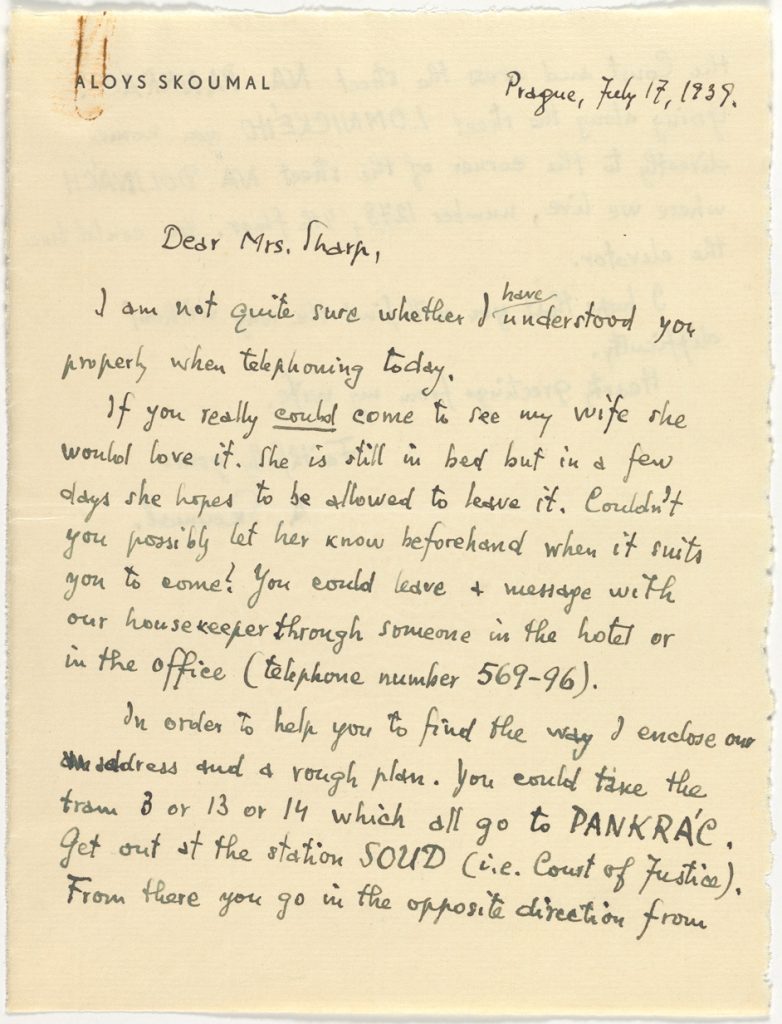 ALOYS SKOUMAL
Prague, July 17, 1939.
Dear Mrs. Sharp,
I am not quite sure whether I have understood you
properly when telephoning today.
If you really could come to see my wife she
would love it. She is still in bed but in a few
days she hopes to be allowed to leave it. Couldn't
you possibly let her know beforehand when it suits
you to come? You could leave a message with
our housekeeper through someone in the hotel or
in the office (telephone number 569-96).
In order to help you to find the way I enclose our
address and a rough plan. You could take the
tram 3 or 13 or 14 which all go to PANKRÁC.
Get out at the station SOUD (i.e. Court of Justice).
From there you go in the opposite direction from